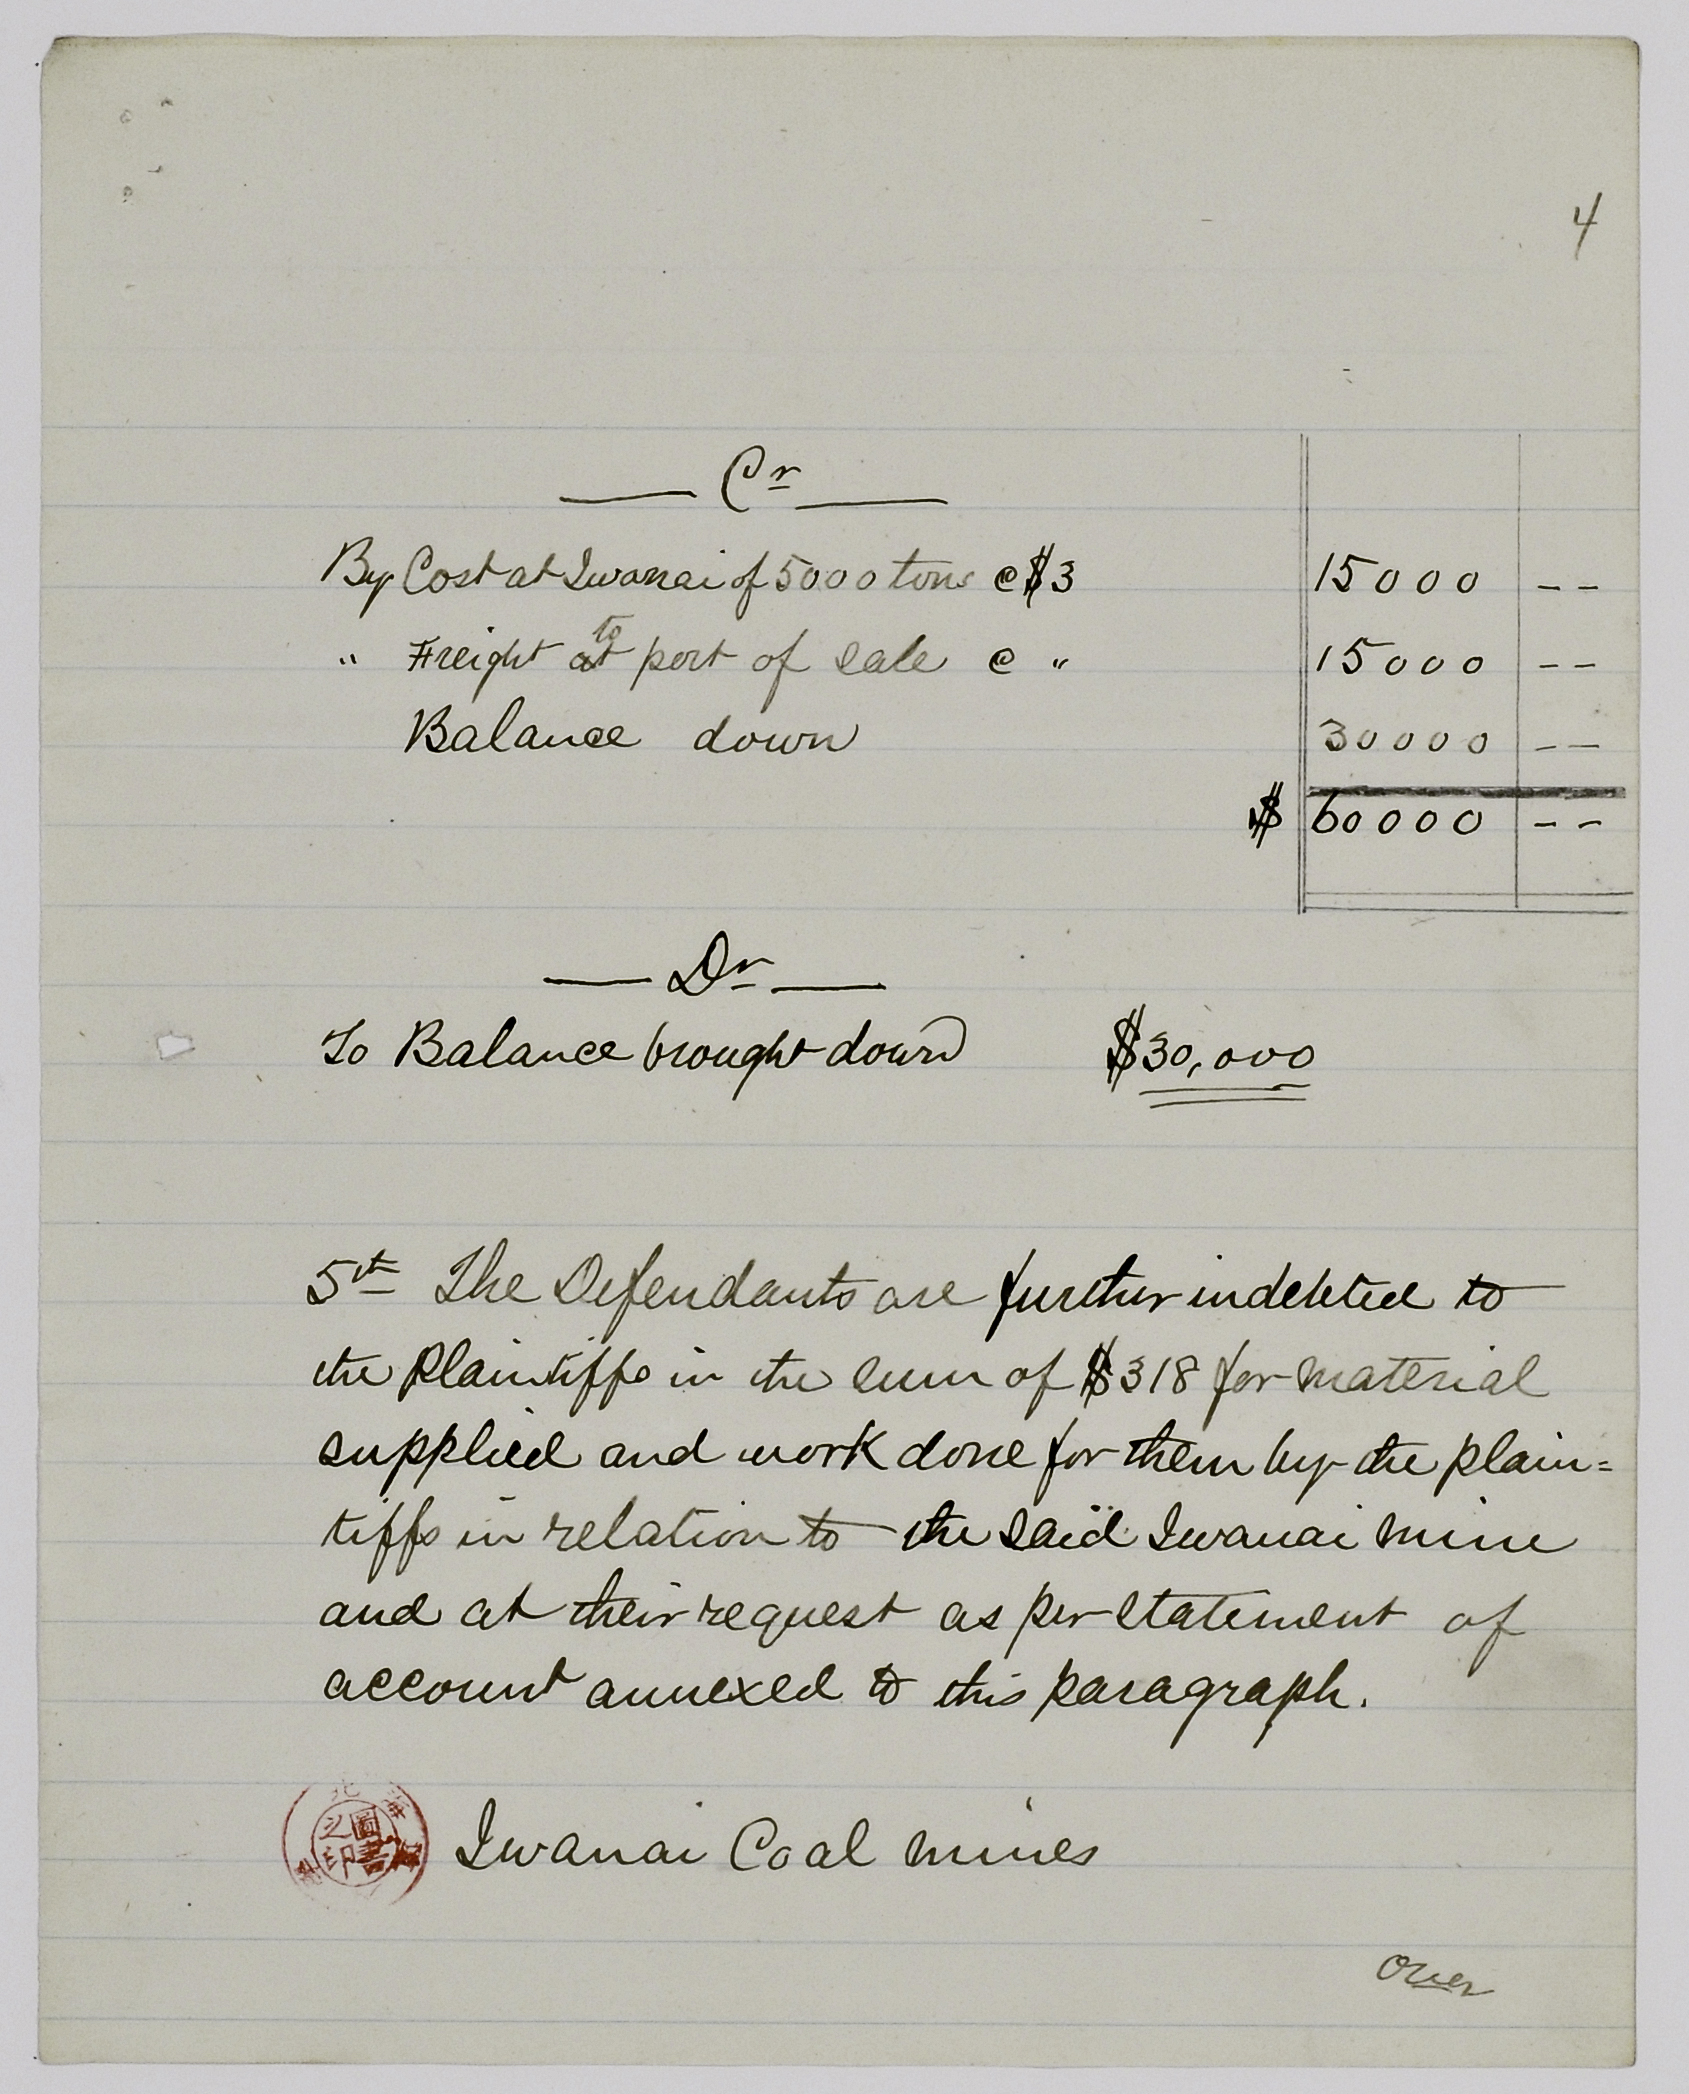 4
Cr
By Cost at Iwanai of 5000 tons @ $3 15000 --
" Freight at to port of sale @ " 15000 --
Balance down 30000 --
$ 60000 --
Dr
To Balance brought down $30,000
5th The Defendants are further indebted to
the Plaintiffs in the sum of $318 for material
supplied and work done for them by the plain=
tiffs in relation to the said Iwanai mine
and at their request as per statement of
account annexed to this paragraph.
北海
圖書
之印
Iwanai Coal mines
over